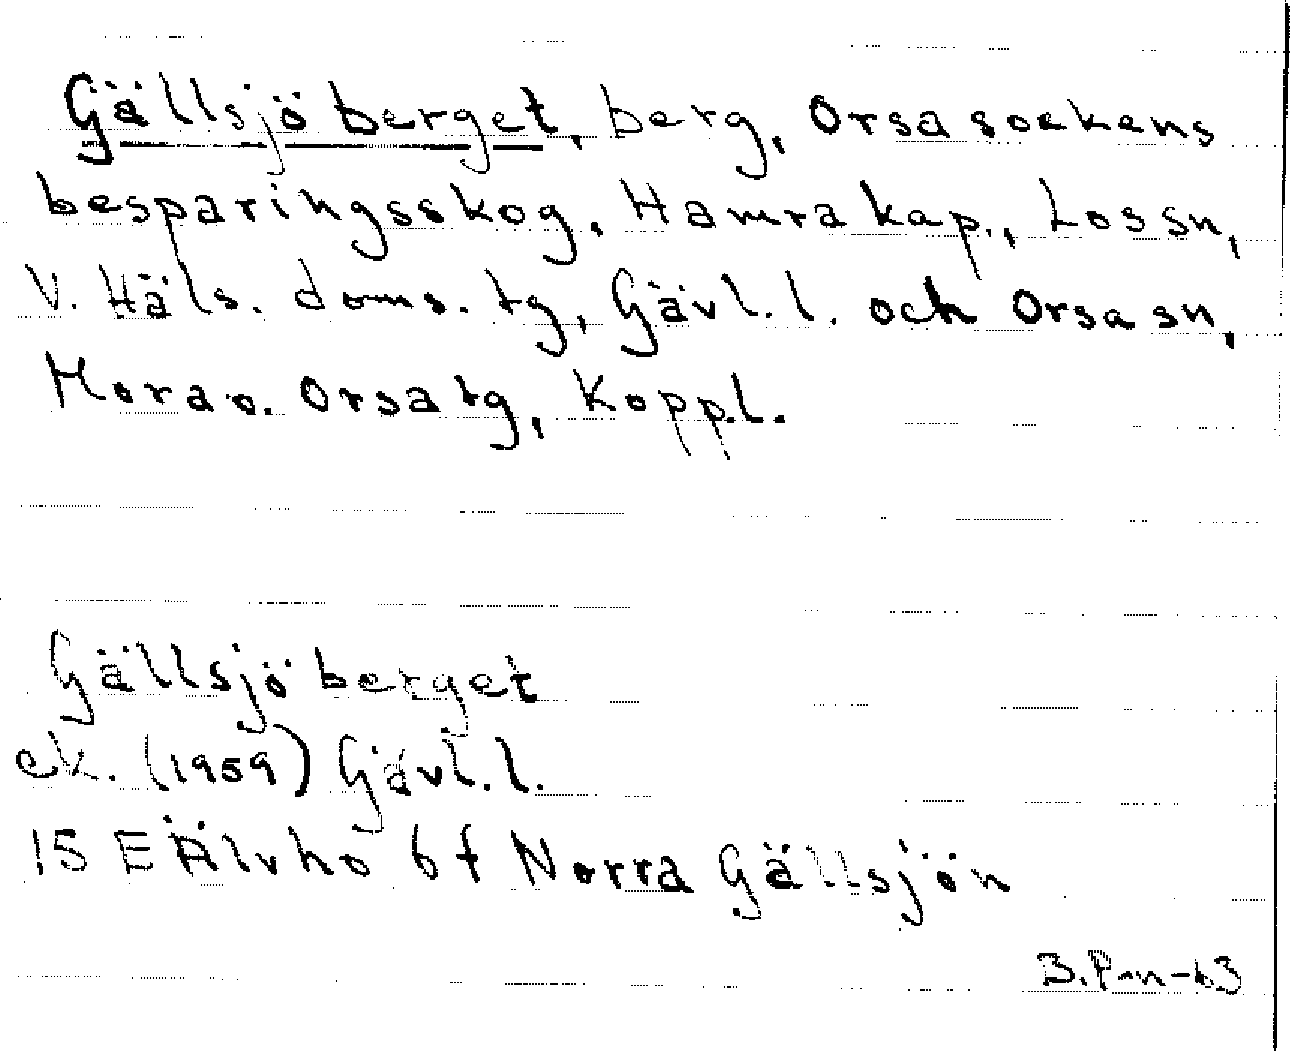 Gällsjöberget, berg, Orsa sockens
besparingsskog, Hamra kap., Los sn,
V. Häls. doms. tg, Gävl. l. och Orsa sn,
Mora o. Orsa tg, Kopp.l.
Gällsjöberget
ek. (1959) Gävl. l.
15 E Älvho 6f Norra Gällsjön